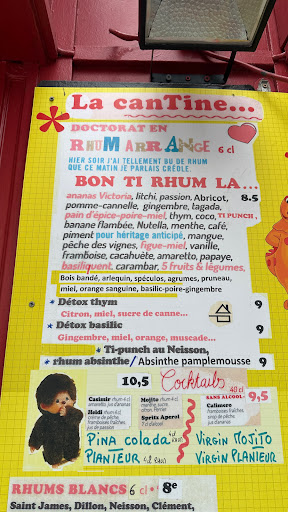 La canTine...
DOCTORAT EN
RHUM ARRANGE 6 cl
HIER SOIR J'AI TELLEMENT BU DE RHUM
QUE CE MATIN JE PARLAIS CRÉOLE
BON TI RHUM LA...
ananas Victoria, litchi, passion, Abricot, 8.5
pomme-cannelle, gingembre, tagada,
pain d'épico-poire-miel, thym, coco, TI PUNCH,
banane flambée, Nutella, menthe, café,
piment pour héritage anticipé, mangue,
pêche des vignes, figue-miel, vanille,
framboise, cacahuète, amaretto, papaye,
basiliquent, carambar, 5 fruits & légumes,
Bois bandé, arlequin, spéculos, agrumes, pruneau,
miel, orange sanguine, basilic-poire-gingembre
* Détox thym 9
Citron, miel, sucre de canne...
* Détox basilic 9
Gingembre, miel, orange, muscade...
* Ti-punch au Neisson,
* rhum absinthe / Absinthe pamplemousse 9
10,5 Cocktails 40 cl
SANS ALCOOL 9,5
Casimir rhum 4 cl
Mojito rhum 4 cl
Calimero
Heidi rhum 4 cl
Spritz Aperol
jus de passion
PINA colada
VIRGIN MOJITO
PLANTEUR
VIRGIN PLANTEUR
RHUMS BLANCS 6 cl 8e
Saint James, Dillon, Neisson, Clément,